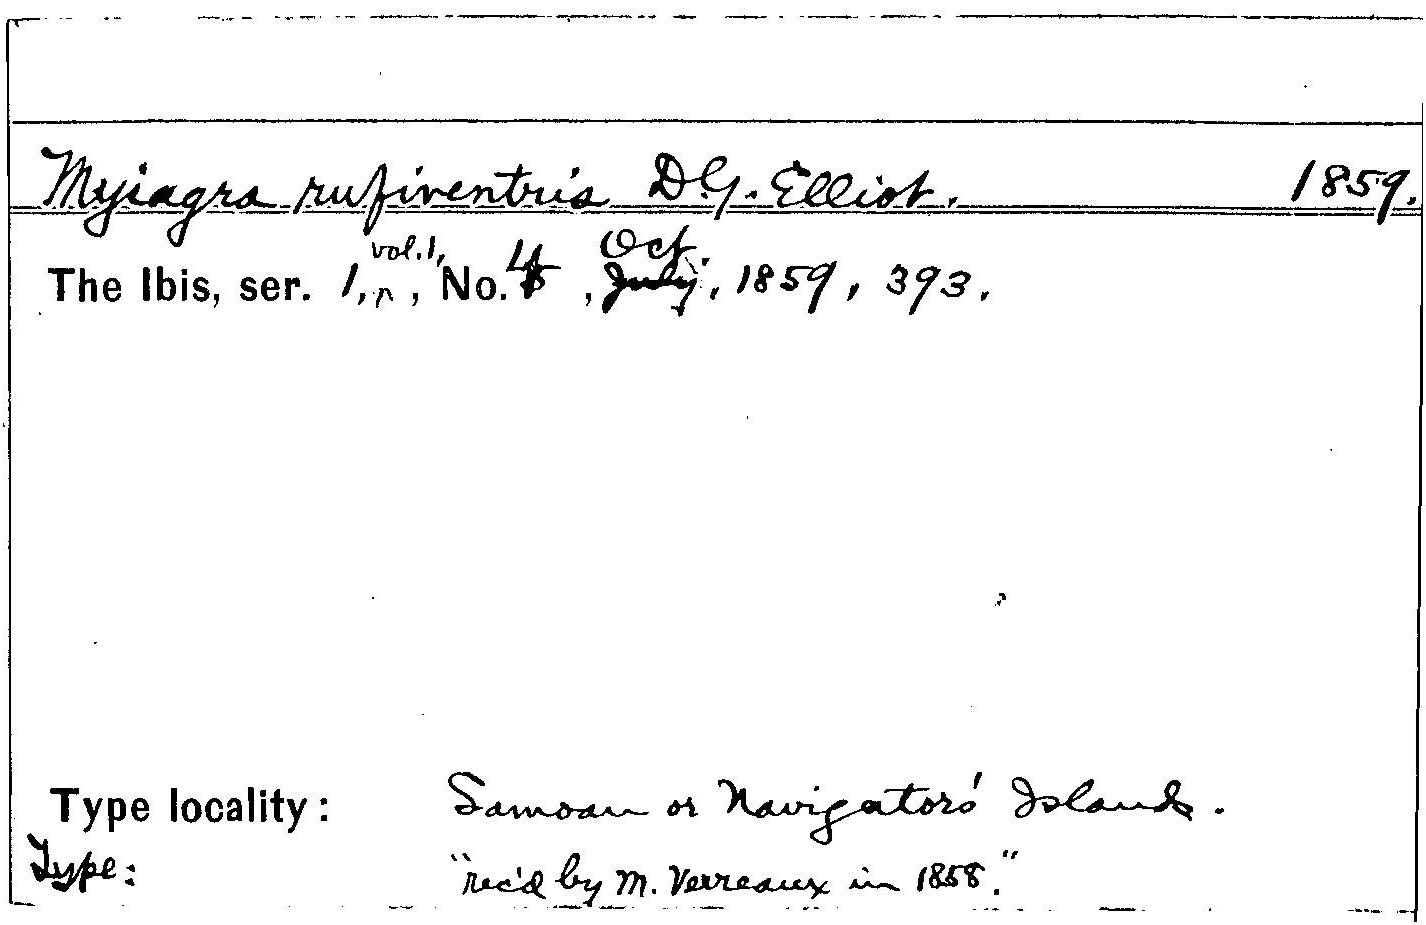 Myiagra rufiventris D.G. Elliot. 1859.
The Ibis, ser. 1, vol. 1, No. 4, Oct. July, 1859, 393.
Type locality: Samoan or Navigators' Islands.
Type: "rec'd by M. Verreaux in 1858."